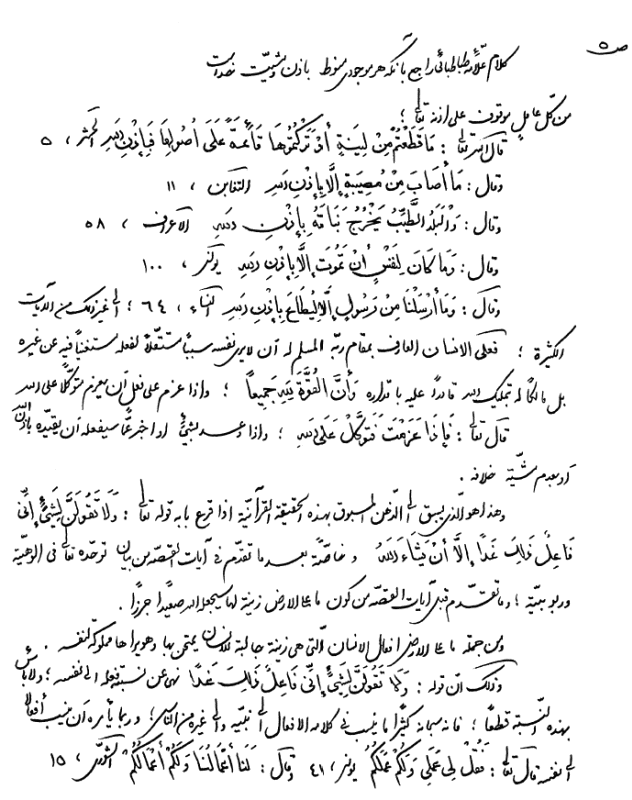 ص ٥
كلام علّامه طباطبائى راجع بآنكه هر موجودى منوط باذن و مشيّت خداست
من كلّ عاملٍ موقوف على إذنه تعالى ؛
قال الله تعالى : مَا قَطَعْتُمْ مِنْ لِينَةٍ أَوْ تَرَكْتُمُوهَا قَآئِمَةً عَلَى أُصُولِهَا فَبِإِذْنِ اللهِ الحشر ، ٥
وقال : مَا أَصَابَ مِنْ مُصِيبَةٍ إِلَّا بِإِذْنِ اللهِ التغابن ، ١١
وقال : وَالْبَلَدُ الطَّيِّبُ يَخْرُجُ نَبَاتُهُ بِإِذْنِ اللهِ الاعراف ، ٥٨
وقال : وَمَا كَانَ لِنَفْسٍ أَنْ تَمُوتَ إِلَّا بِإِذْنِ اللهِ يونس ، ١٠٠
وقال : وَمَا أَرْسَلْنَا مِنْ رَسُولٍ إِلَّا لِيُطَاعَ بِإِذْنِ اللهِ النساء ، ٦٤ ؛ الى غير ذلك من الآيات
الكثيرة ؛ فعلى الانسان العارف بمقام ربّه المسلم له أن لا يرى نفسه سبباً مستقلّاً لفعله مستغنياً فيه عن غيره
بل مالكاً له بتمليك الله قادراً عليه باقداره وَأَنَّ الْقُوَّةَ لِلَّهِ جَمِيعاً ؛ و اذا عزم على فعل أن يعزم متوكّلاً على الله
قال تعالى : فَإِذَا عَزَمْتَ فَتَوَكَّلْ عَلَى اللهِ ؛ و اذا وعد بشىءٍ او اخبر عمّا سيفعله أن يقيّده باذن الله
او بعدم مشيّة خلافه .
وهذا هو الّذى يسبق الى الذّهن المسبوق بهذه الحقيقة القرآنيّة اذا قرع بابه قوله تعالى : وَلَا تَقُولَنَّ لِشَىْءٍ إِنِّى
فَاعِلٌ ذَلِكَ غَدًا إِلَّا أَنْ يَشَاءَ اللهُ و خاصّةً بعد ما تقدّم فى آيات القصّة من بيان توحّده تعالى فى الوهيّته
و ربوبيّته ؛ و ما تقدّم قبل آيات القصّة من كون ما على الارض زينة لها سيجعله الله صعيداً جرزاً .
ومن جملة ما على الارض افعال الانسان الّتى هى زينة جالبة للانسان يمتحن بها و هو يراها مملوكة لنفسه .
وذلك أنّ قوله : وَلَا تَقُولَنَّ لِشَىْءٍ إِنِّى فَاعِلٌ ذَلِكَ غَدًا نهى عن نسبته فعله الى نفسه ؛ ولا بأس
بهذه النسبة قطعاً ؛ فانه سبحانه كثيراً ما ينسب فى كلامه الافعال الى نبيّه و الى غيره من الناس ؛ و ربما يأمره أن ينسب أفعالاً
الى نفسه قال تعالى : فَقُلْ لِى عَمَلِى وَلَكُمْ عَمَلُكُمْ يونس ، ٤١ وقال : لَنَا أَعْمَالُنَا وَلَكُمْ أَعْمَالُكُمْ الشورى ، ١٥